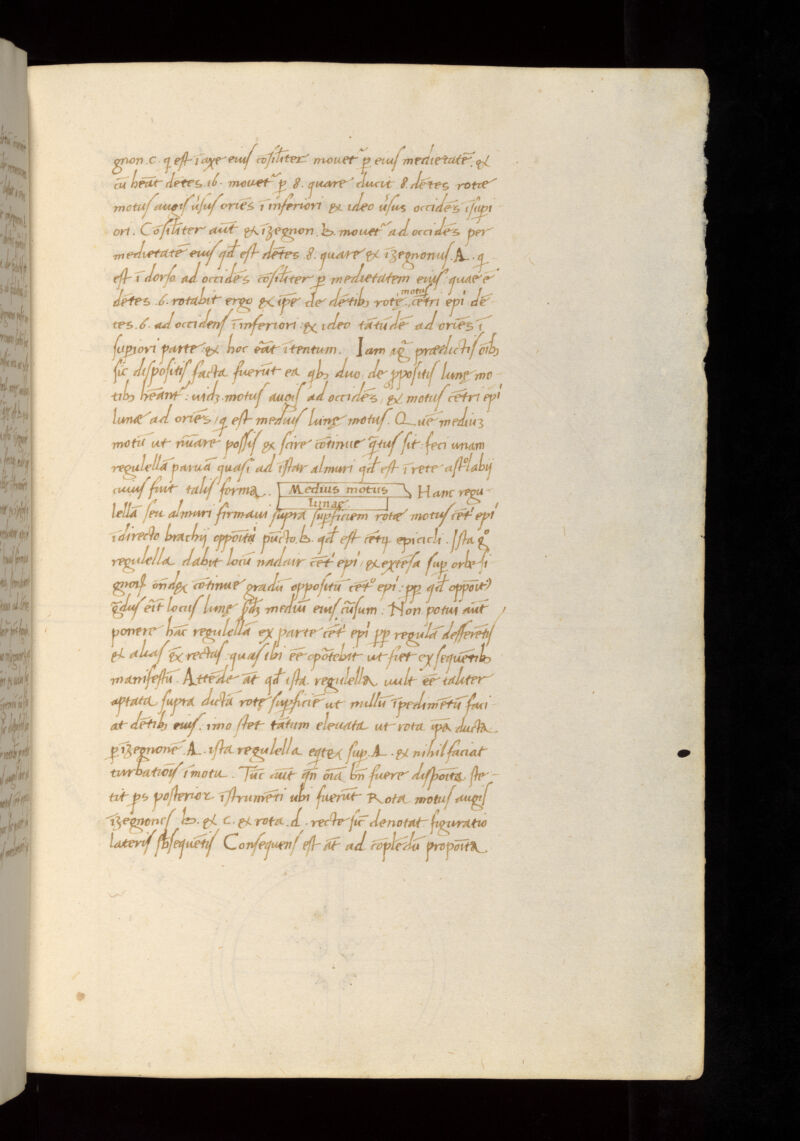 gnon. c. q̄ est ī axe eius cōsiliter mouet᷑ ꝑ eius medietatē. et
cū hēat dētes .16. mouet᷑ ꝑ 8. quare ducit 8. dētes rotæ
motus augis ūsus oriēs ī inferiori et ideo ūsus occidēs ī supi
ori. Cōsiliter aūt et īzegnon .b. mouet᷑ ad occidēs per
medietatē eius qd̄ est dētes 8. quare et īzegnonus .A. q̄
est ī dorso ad occidēs cōsiliter ꝑ medietatem eius quæ ē
dētes .6. rotabit ergo et ip̄e de dētibꝫ rotę motus cētri epī dē
tes .6. ad occidens ī inferiori et ideo tātūdē ad oriēs ī
supiori parte et hoc erāt ītentum. Iam ag̃ prædictis oībꝫ
sic dispositis facta fuerūt ea qbꝫ duo de ꝓpositis lunę mo
tibꝫ hēant᷑: uidꝫ motus augis ad occidēs / et motus cētri epī
lunæ ad oriēs / q̄ est medius lunę motus. Quē mediuꝫ
motū ut nūare possis et scire cōtinue q̄tus sit: feci unam
regulellā paruā quasi ad īstar almuri qd̄ est ī rete astꝰlabij
cuius fuit talis forma. Medius motus Hanc regu
lunae
lellā seu almuri firmaui supra supficiem rotæ motus cēt᷑ epī
īdirecto brachij oppōiti pūcto .b. qd̄ est cētrꝫ epicicli. Ista gͦ
regulella dabit locū nadair cēt᷑ epī / et extēsa sup orbē si
gnoꝝ ōndet cōtinue gradū oppōitū cētͦ epī: ꝓp qd̄ oppōitꝰ
g̃dus erit locus lunę scdꝫ mediū eius cursum. Non potui aūt
ponere hāc regulellā ex parte cēt᷑ epī ꝓp regulā defferētis
et alias ēx rectas: quas ibi eē oꝓtebit ut fiet ex sequētibꝫ
manifestū. Attēde āt qd̄ ista regulella uult eē taliter
aptata supra dictā rotę supficiē ut nullū īpedimētū faci
at dētibꝫ eius. imo stet tātum eleuata ut rota ip̄a ducta
ꝑ īzegnonē .A. ista regulella eqtet sup .A. et nihil faciat
turbatiōis ī motu. Tūc aūt qn̄ oīa bn̄ fuere dispōita ste-
tit ps posterior īstrumēti ubi fuerūt Rota motus augis
īzegnones .b. et c. et rota .d. recte sic denotat figuratio
lateris sbsequētis Consequens est āt ad cōplēdū propōita